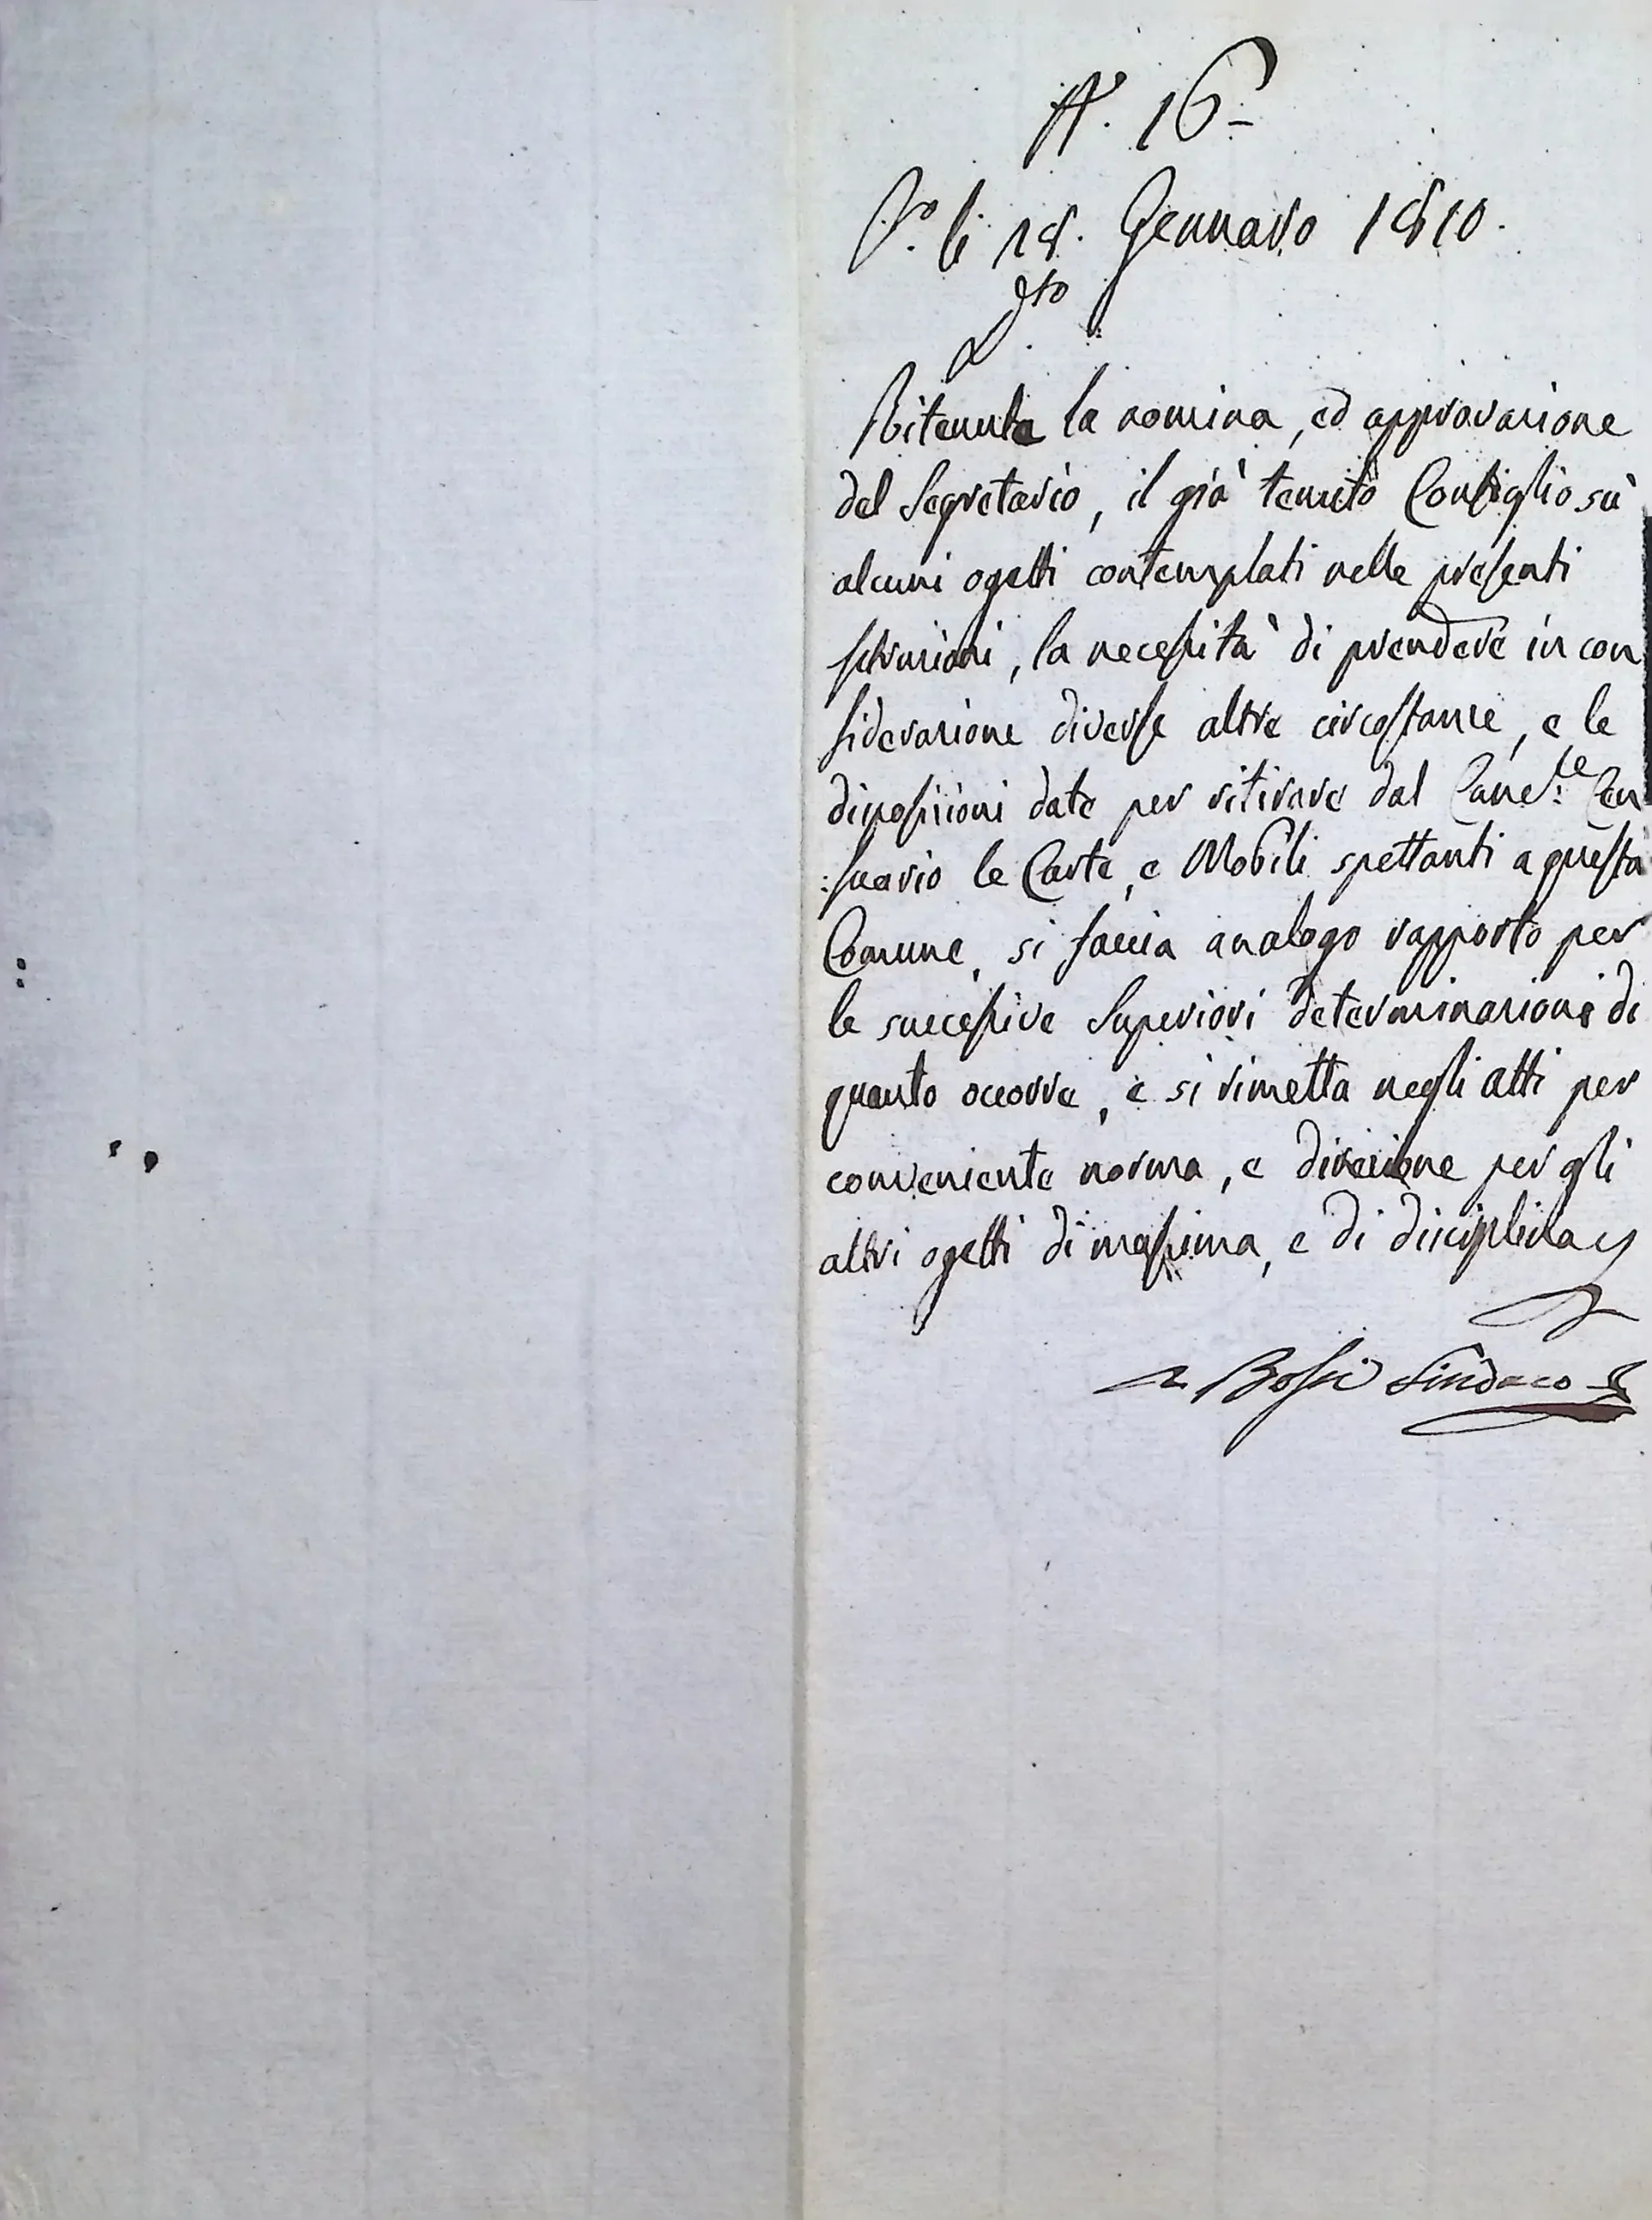 N. 16
P.to li 18. Gennaro 1810.
D.to
Ritenuta la nomina, ed approvazione
del Segretario, il già tenuto Consiglio sù
alcuni ogetti contemplati nelle presenti
Istruzioni, la necessità di prendere in con
siderazione diverse altre circostanze, e le
disposizioni date per ritirare dal Canc.re Cen
:suario le Carte, e Mobili spettanti a questa
Comune, si faccia analogo rapporto per
le successive Superiori determinazioni di
quanto occorre, e si rimetta negli atti per
conveniente norma, e direzione per gli
altri ogetti di massima, e di disciplina
Bossi Sindaco